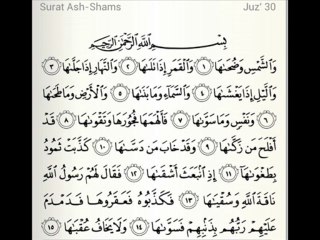 Surat Ash-Shams Juz' 30
بِسْمِ اللَّهِ الرَّحْمَٰنِ الرَّحِيمِ
وَالشَّمْسِ وَضُحَىٰهَا ١ وَالْقَمَرِ إِذَا تَلَىٰهَا ٢ وَالنَّهَارِ إِذَا جَلَّىٰهَا ٣
وَالَّيْلِ إِذَا يَغْشَىٰهَا ٤ وَالسَّمَآءِ وَمَا بَنَىٰهَا ٥ وَالْأَرْضِ وَمَا طَحَىٰهَا
٦ وَنَفْسٍ وَمَا سَوَّىٰهَا ٧ فَأَلْهَمَهَا فُجُورَهَا وَتَقْوَىٰهَا ٨ قَدْ
أَفْلَحَ مَن زَكَّىٰهَا ٩ وَقَدْ خَابَ مَن دَسَّىٰهَا ١٠ كَذَّبَتْ ثَمُودُ
بِطَغْوَىٰهَآ ١١ إِذِ انۢبَعَثَ أَشْقَىٰهَا ١٢ فَقَالَ لَهُمْ رَسُولُ اللَّهِ
نَاقَةَ اللَّهِ وَسُقْيَٰهَا ١٣ فَكَذَّبُوهُ فَعَقَرُوهَا فَدَمْدَمَ
عَلَيْهِمْ رَبُّهُم بِذَنۢبِهِمْ فَسَوَّىٰهَا ١٤ وَلَا يَخَافُ عُقْبَٰهَا ١٥